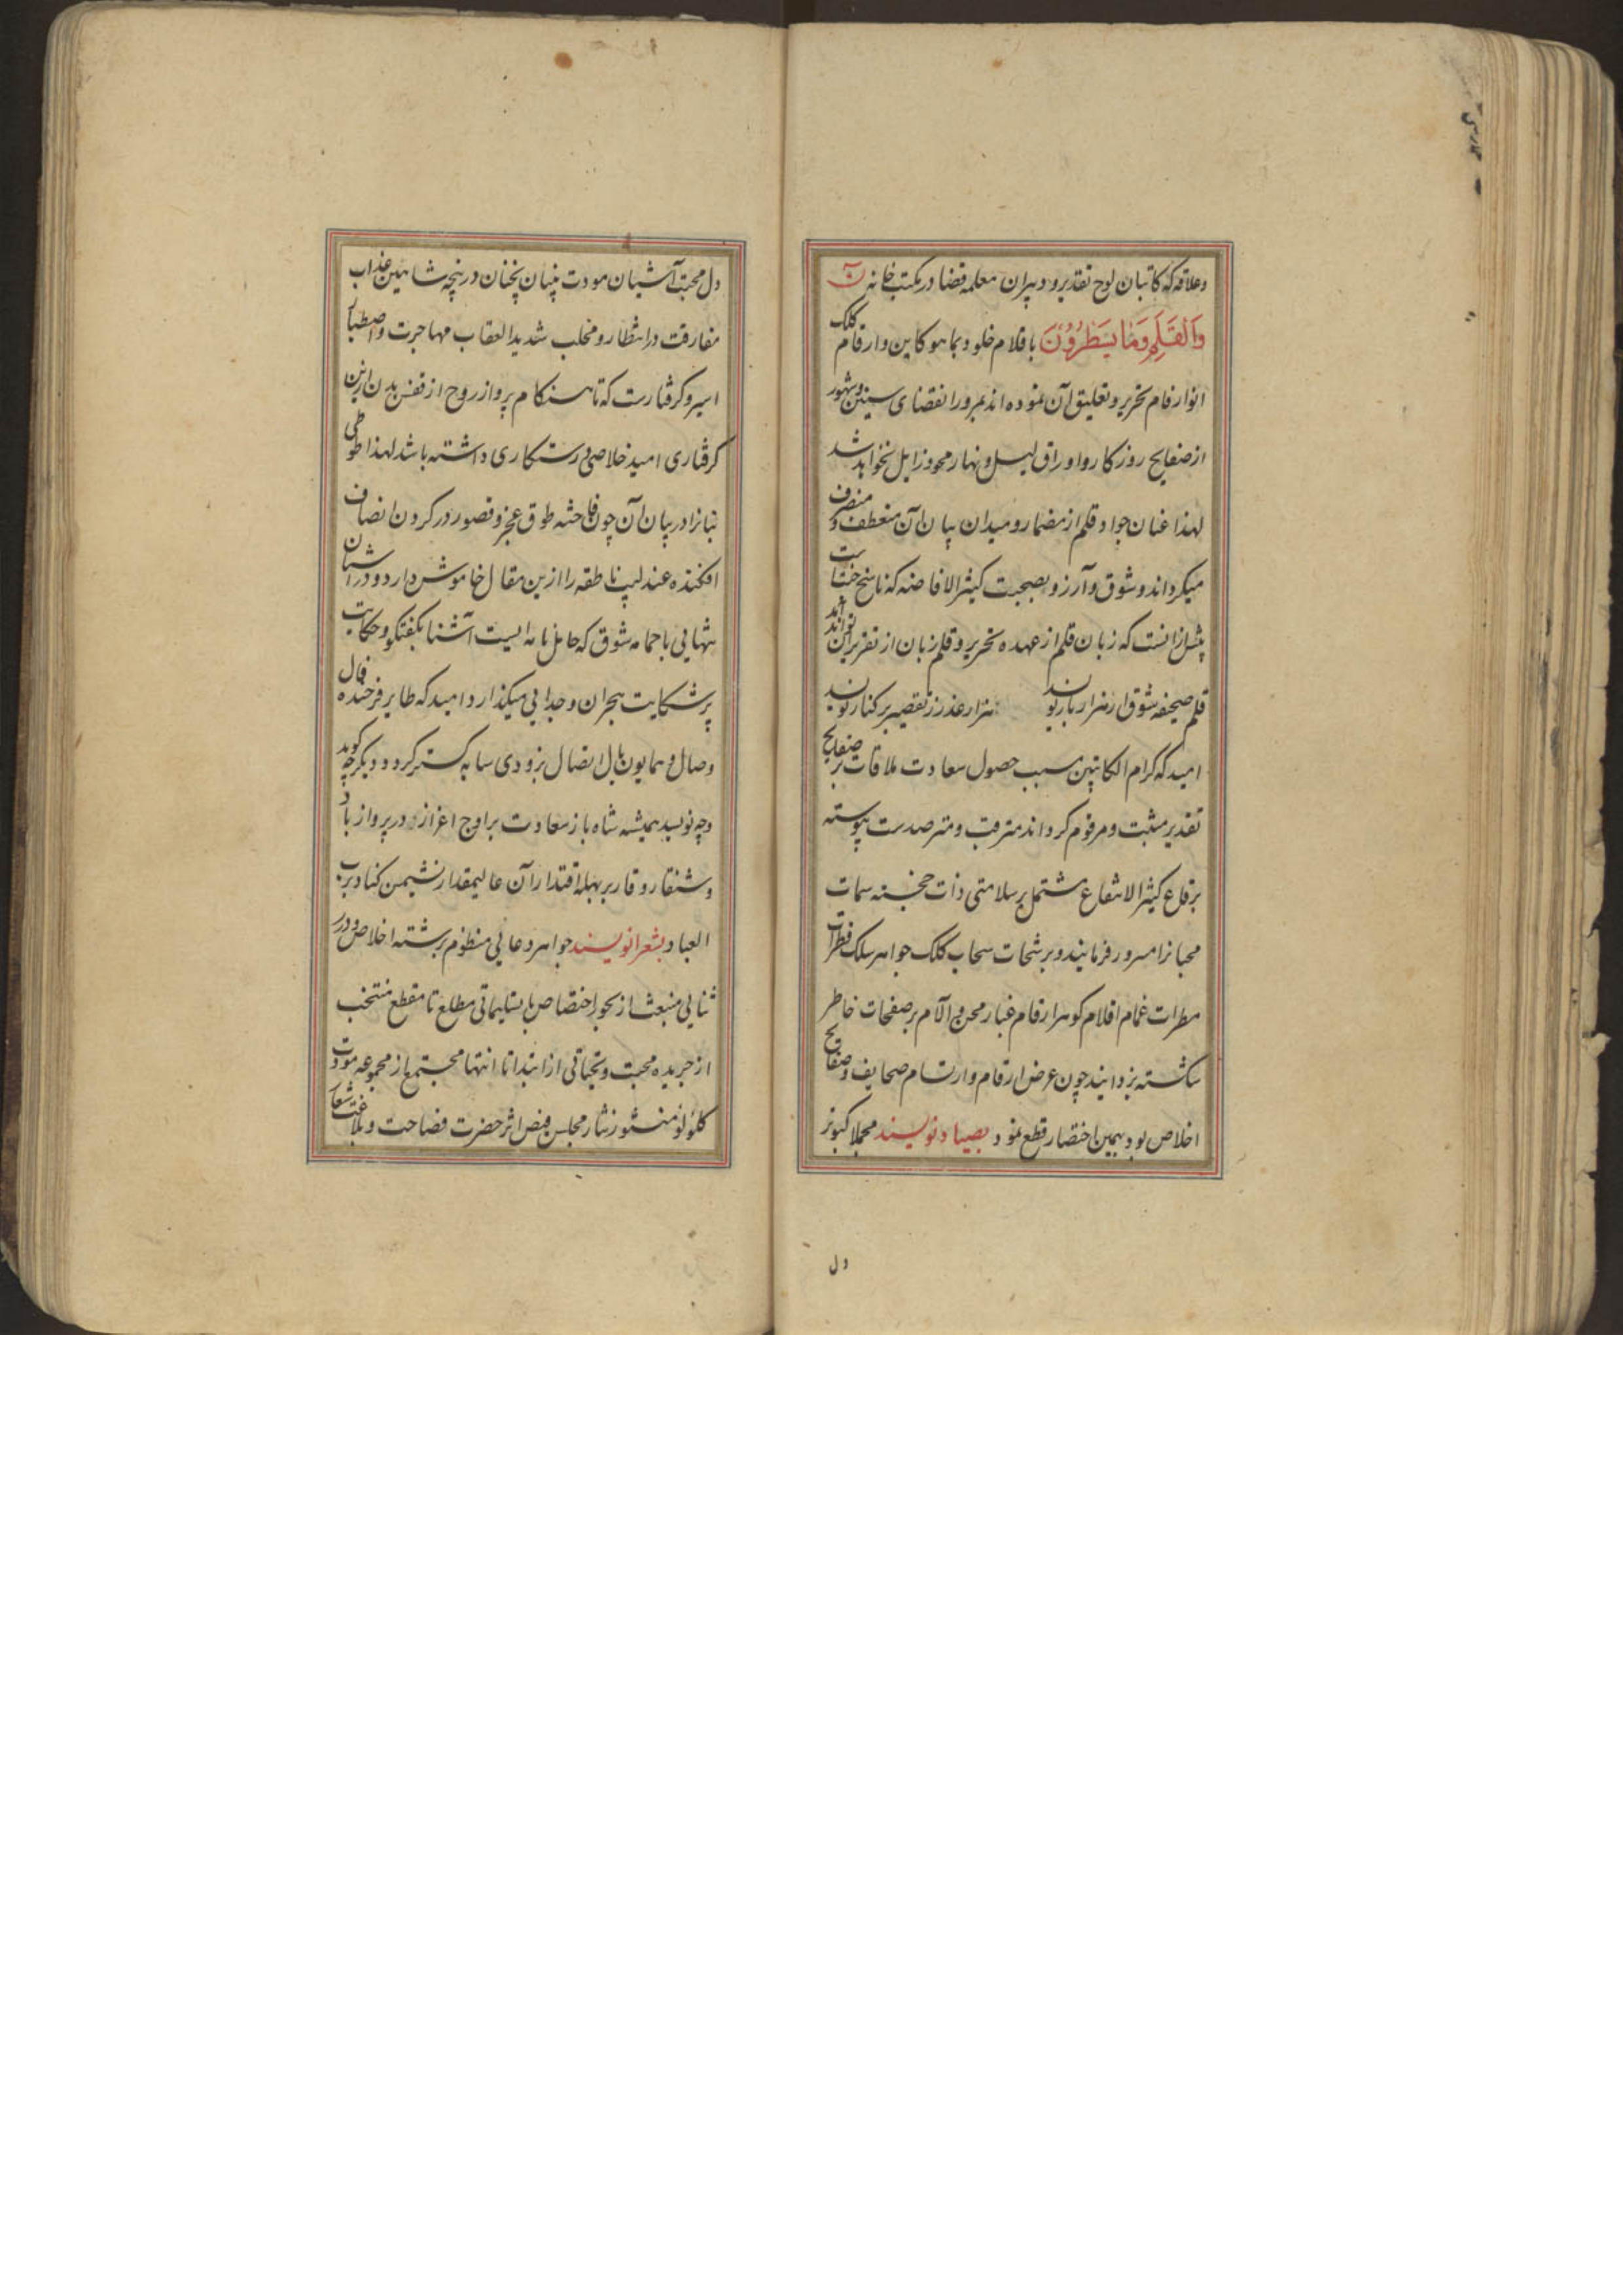 وعلاقه که کاتبان لوح تقدیر و دبیران معلمه قضا در مکتب خانه ن
والقلم وما یسطرون باقلام خلود بما هو کاین و ارقام کلک
انوار فام تحریر و تعلیق آن نموده اند بمرور انقضای سنین و شهور
از صفایح روزکار و اوراق لیل و نهار محو و زایل نخواهد شد
لهذا عنان جواد قلم از مضمار و میدان بیان آن منعطف و منصرف
میکرداند و شوق و آرزو بصحبت کثیر الافاضه که ناسخ
بیش از انست که زبان قلم از عهده تحریر و قلم زبان از تقریر آن تواند آمد
قلم صحیفه شوق ار هزار بار نویسد هزار عذر ز تقصیر بر کنار نویسد
امید که کرام الکاتبین سبب حصول سعادت ملاقات بر صفایح
تقدیر مثبت و مرقوم کرداند مترقب و مترصدست پیوسته
برقاع کثیر الانتفاع مشتمل بر سلامتی ذات خجسته سمات
محبانرا مسرور فرمایند و برشحات سحاب کلک جواهر سلک قطرات
مطرات غمام اقلام کوهر ارقام غبار محن و آلام بر صفحات خاطر
شکسته بزدایند چون عرض ارقام و ارتسام صحایف و صفایح
اخلاص بود بهمین اختصار قطع نمود بصیاد نویسند مجملا کبوتر
دل
دل محبت آشیان مودت بنیان بخنان در پنجه شاهین عذاب
مفارقت در انتظار و مخلب شدید العقاب مهاجرت و اصطبار
اسیر و کرفتارست که تا هنکام پرواز روح از قفس بدن ازین
کرفتاری امید خلاصی و رستکاری داشته باشد لهذا طوطی
نیازرا در بیان آن چون فاخته طوق عجز و قصور در کردن انصاف
افکنده عندلیب ناطقه را ازین مقال خاموش دارد و در آشیان
تنهایی با حمامه شوق که حامل نامه ایست آشنا بکفتکو و حکایت
پر شکایت هجران و جدایی میکذارد امید که طایر فرخنده فال
وصال و همایون بال اتصال بزودی سایه کستر کردد دیکر چه کوید
و چه نویسد همیشه شاه باز سعادت بر اوج اعزاز در پرواز باد
و شنقار وقار بر بهله اقتدار آن عالیمقدار نشیمن کناد برب
العباد بشعرا نویسند جواهر دعایی منظوم برشته اخلاص و درر
ثنایی منبعث از بحور اختصاص با تسلیماتی مطلع تا مقطع منتخب
از جریده محبت و تحیاتی از ابتدا تا انتها مجتمع از مجموعه مودت
کلؤلؤ منثور نثار مجلس فیض اثر حضرت فصاحت و بلاغت شعار